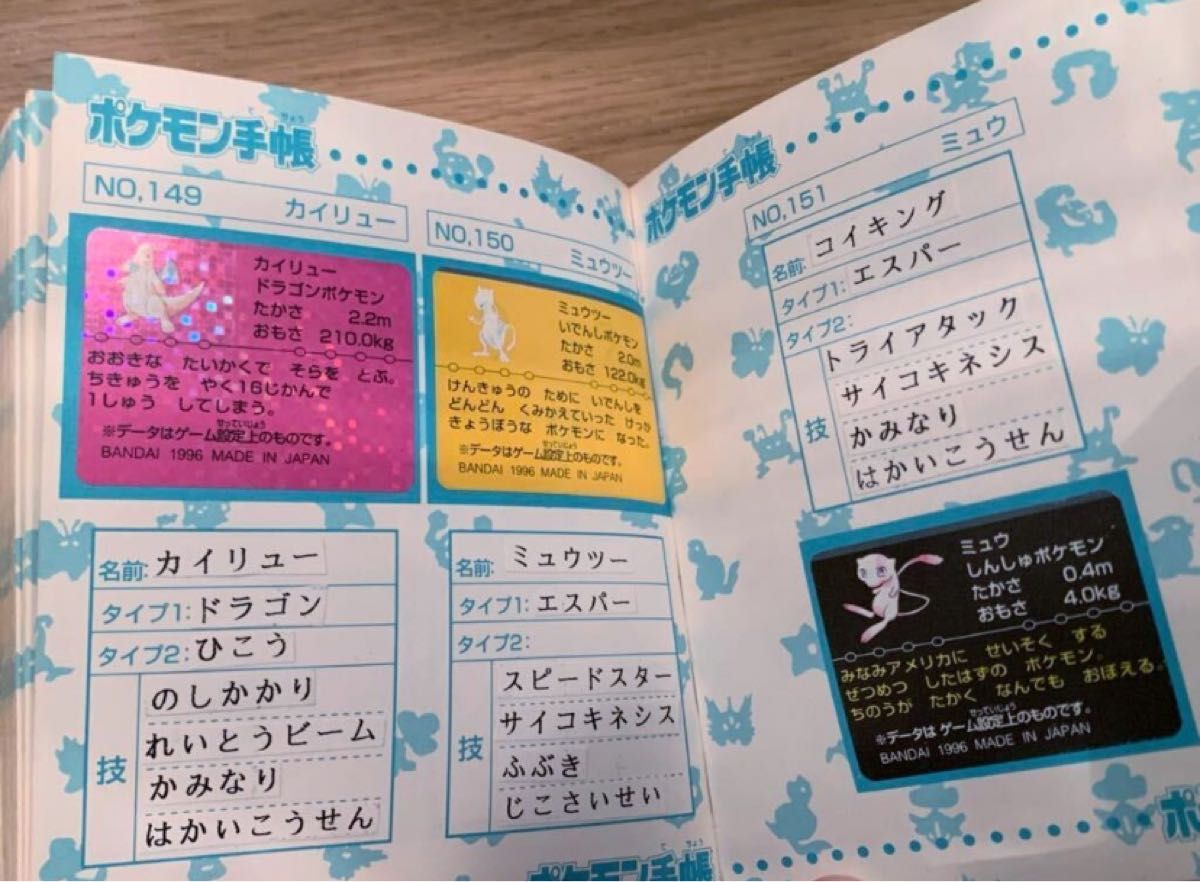 ポケモン手帳
てちょう
NO,149 カイリュー
カイリュー
ドラゴンポケモン
たかさ 2.2m
おもさ 210.0kg
おおきな たいかくで そらを とぶ。
ちきゅうを やく16じかんで
1しゅう してしまう。
せっていじょう
※データはゲーム設定上のものです。
BANDAI 1996 MADE IN JAPAN
名前:カイリュー
タイプ1:ドラゴン
タイプ2:ひこう
技
のしかかり
れいとうビーム
かみなり
はかいこうせん
NO,150 ミュウツー
ミュウツー
いでんしポケモン
たかさ 2.0m
おもさ 122.0kg
けんきゅうの ために いでんしを
どんどん くみかえていった けっか
きょうぼうな ポケモンに なった。
せっていじょう
※データはゲーム設定上のものです。
BANDAI 1996 MADE IN JAPAN
名前:ミュウツー
タイプ1:エスパー
タイプ2:
技
スピードスター
サイコキネシス
ふぶき
じこさいせい
てちょう
ポケモン手帳
ポケモン手帳
NO,151 ミュウ
名前:コイキング
タイプ1:エスパー
タイプ2:
技
トライアタック
サイコキネシス
かみなり
はかいこうせん
ミュウ
しんしゅポケモン
たかさ 0.4m
おもさ 4.0kg
みなみアメリカに せいそく する
ぜつめつ したはずの ポケモン。
ちのうが たかく なんでも おぼえる。
せっていじょう
※データはゲーム設定上のものです。
BANDAI 1996 MADE IN JAPAN
ポ